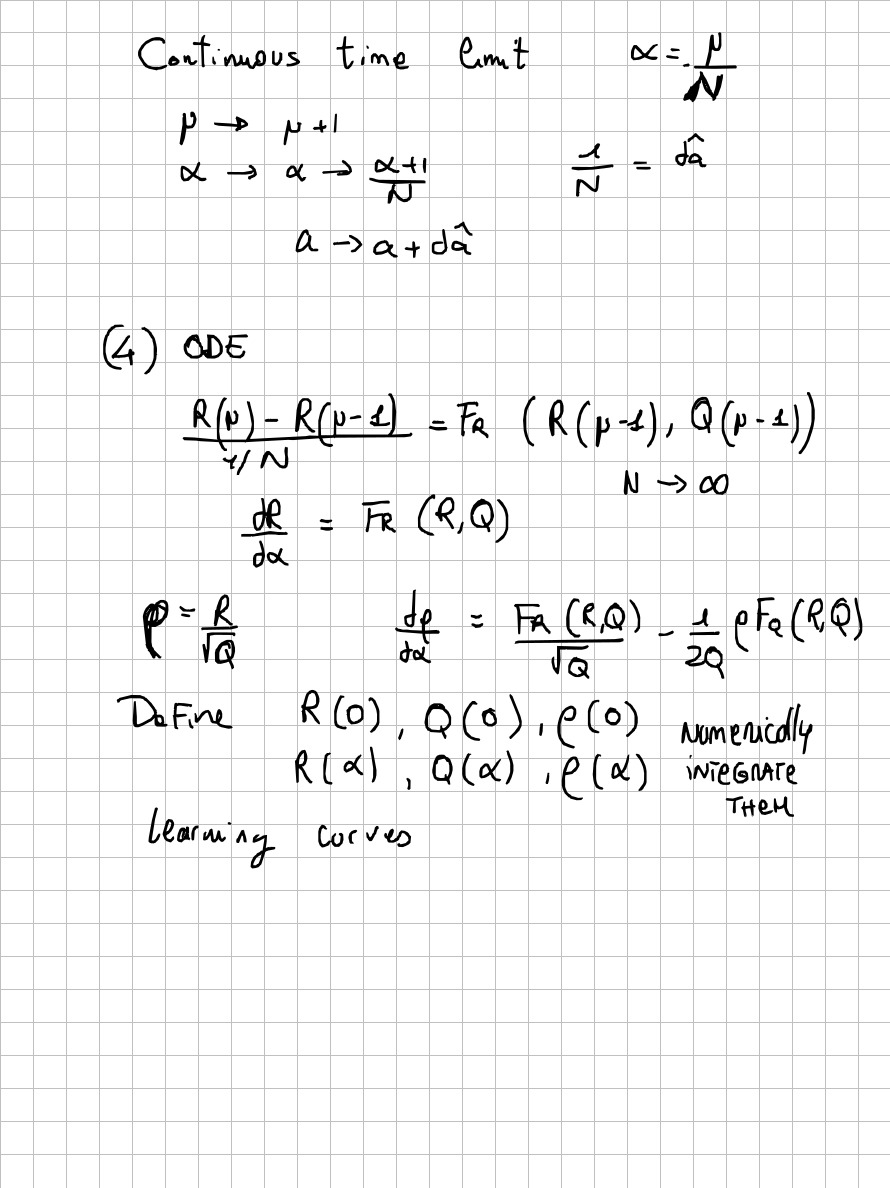 Continuous time limit α = μ/N
μ → μ+1
α → α → (α+1)/N 1/N = dâ
a → a + dâ
(4) ODE
(R(μ) - R(μ-1))/(1/N) = F_R (R(μ-1), Q(μ-1))
N → ∞
dR/dα = F_R (R,Q)
ρ = R/√Q dρ/dα = F_R (R,Q)/√Q - 1/2Q ρ F_Q (R,Q)
Define R(0), Q(0), ρ(0) Numerically
R(α), Q(α), ρ(α) INTEGRATE
THEM
learning curves